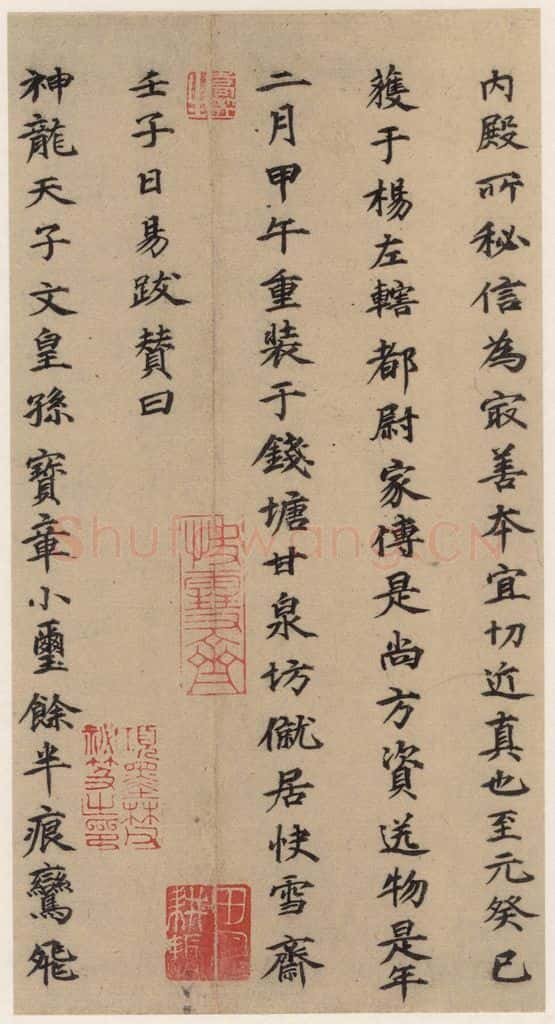 内殿所秘信為㝡善本宜切近真也至元癸巳
獲于楊左轄都尉家傳是尚方資送物是年
二月甲午重装于錢塘甘泉坊僦居快雪齋
壬子日易跋賛曰
神龍天子文皇孫寳章小璽餘半痕鸞飛
快雪齋
項墨林父
祕笈之印
Shufawang.CN